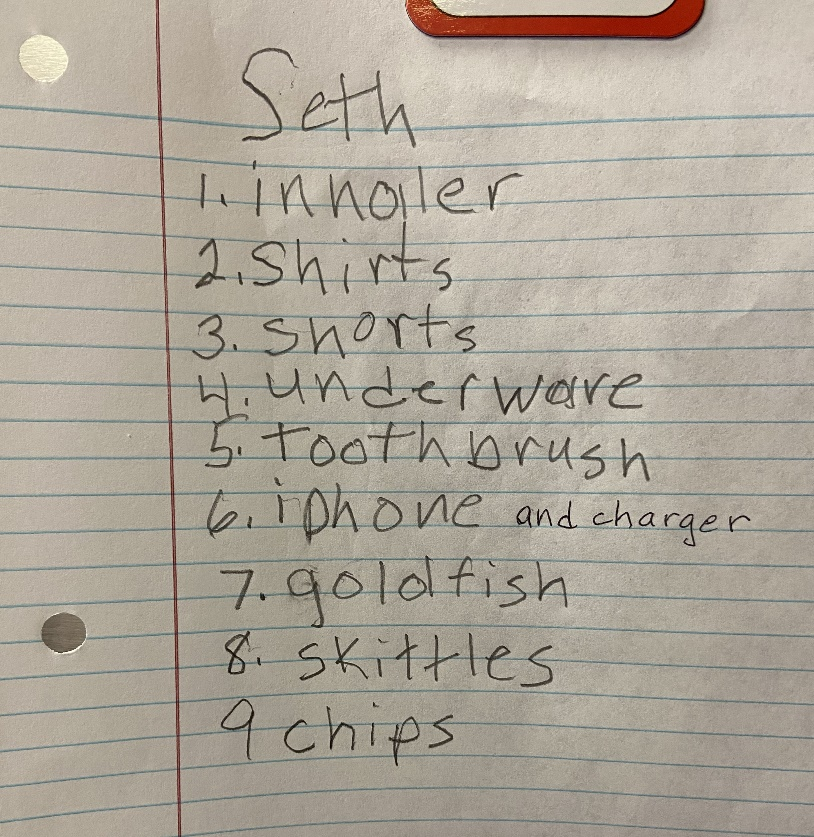 Seth
1. inhaler
2. Shirts
3. shorts
4. underware
5. toothbrush
6. iphone and charger
7. goldfish
8. skittles
9 chips